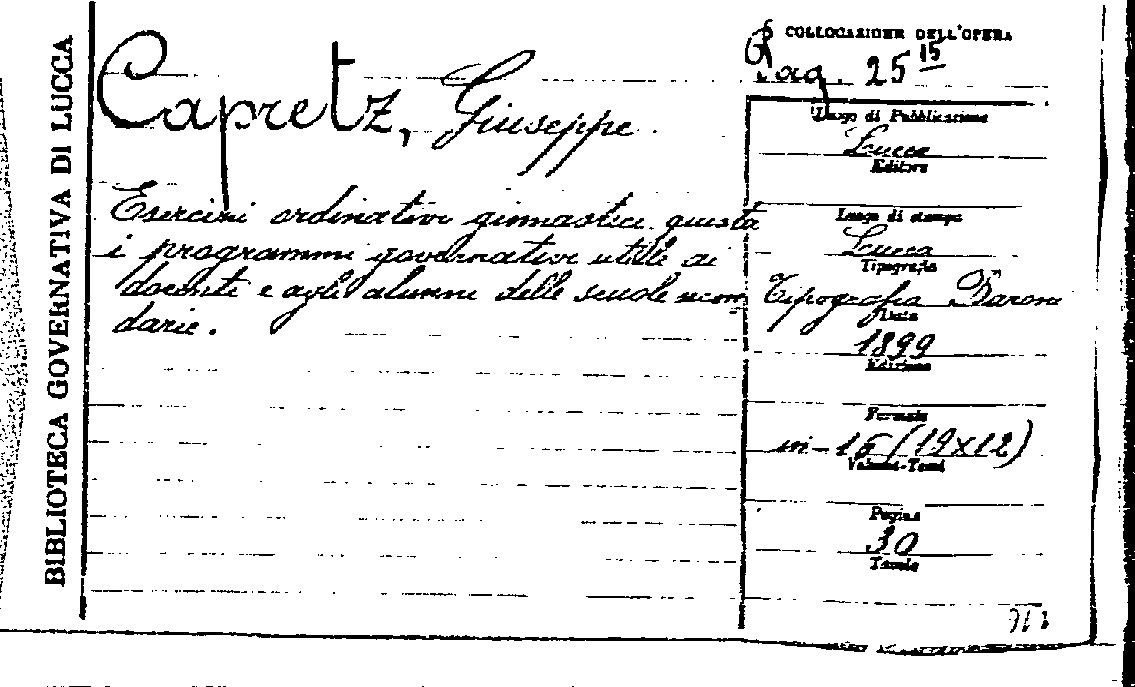 BIBLIOTECA GOVERNATIVA DI LUCCA
Capretz, Giuseppe
Esercizi ordinativi ginnastici giusta
i programmi governativi utili ai
docenti e agli alunni delle scuole secon
darie.
COLLOCAZIONE DELL'OPERA
Pag. 25 15
Luogo di Pubblicazione
Lucca
Editore
Luogo di stampa
Lucca
Tipografia
Tipografia Baroni
Data
1899
Edizione
Formato
in-16 (19x12)
Volumi-Tomi
Pagine
30
Tavole